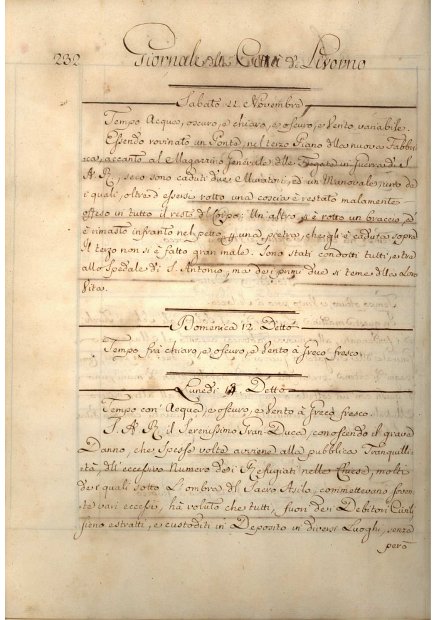 232 Giornale della Città di Livorno
Sabato 11 Novembre
Tempo Acqua, oscuro, e chiaro, e oscuro, e Vento variabile.
Essendo rovinato un Ponte, nel terzo Piano della nuova Fabbri-
ca, accanto al Magazzino Generale delle Fregate in Guerra di S.
A. R., seco sono caduti due Muratori, ed un Manovale, uno de
i quali, oltre d'essersi rotto una coscia è restato malamente
offeso in tutto il resto del Corpo; Un'altro si è rotto un braccio, ed
è rimasto infranto nel petto, p una pietra, che gli è caduta sopra
Il terzo non si è fatto gran male. Sono stati condotti tutti, e tre
allo Spedale di S. Antonio, ma dei primi due si teme della Loro
Vita.
Domenica 12 Detto
Tempo frà chiaro, e oscuro, e Vento à Greco fresco.
Lunedì 13 Detto
Tempo con Acqua, e oscuro, e Vento à Greco fresco.
S. A. R. il Serenissimo Gran Duca, conoscendo il grave
Danno, che spesse volte avviene alla pubblica Tranquil-
lità, dell'eccessivo Numero dei Refugiati nelle Chiese, molti
dei quali sotto L'ombra del Sacro Asilo, commettevano soven-
te vari eccessi, hà voluto che tutti, fuori dei Debitori Civili
sieno estratti, e custoditi in Deposito in diversi Luoghi, senza
però